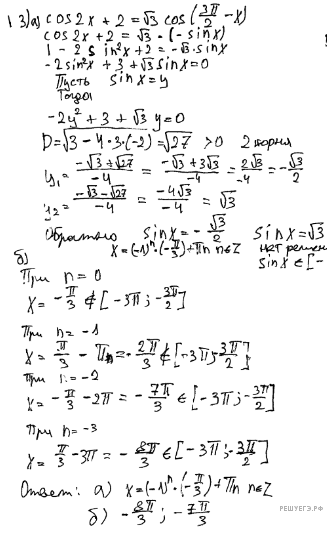 13) а) cos2x + 2 = √3 cos(3π/2 - x)
cos2x + 2 = √3 · (-sinx)
1 - 2sin²x + 2 = -√3 · sinx
-2sin²x + 3 + √3 sinx = 0
Пусть sinx = y
Тогда
-2y² + 3 + √3 y = 0
D = √3 - 4·3·(-2) = √27 > 0 2 корня
y₁ = (-√3 + √27)/-4 = (-√3 + 3√3)/-4 = 2√3/-4 = -√3/2
y₂ = (-√3 - √27)/-4 = -4√3/-4 = √3
Обратно sinx = -√3/2 sinx = √3
x = (-1)ⁿ · (-π/3) + πn n∈Z нет решени
sinx ∈ [-
б)
При n = 0
x = -π/3 ∉ [-3π; -3π/2]
При n = -1
x = π/3 - πn = -2π/3 ∉ [-3π; -3π/2]
При n = -2
x = -π/3 - 2π = -7π/3 ∈ [-3π; -3π/2]
При n = -3
x = π/3 - 3π = -8π/3 ∈ [-3π; -3π/2]
Ответ: а) x = (-1)ⁿ · (-π/3) + πn n∈Z
б) -8π/3; -7π/3
РЕШУЕГЭ.РФ